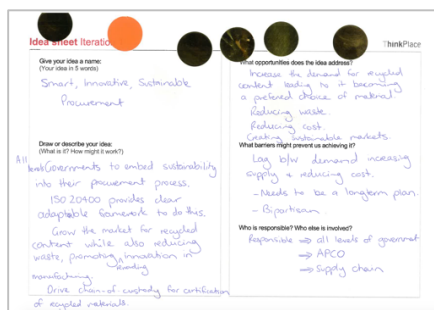 Idea sheet Iteration
ThinkPlace
Give your idea a name:
(Your idea in 5 words)
Smart, Innovative, Sustainable
Procurement
Draw or describe your idea:
(What is it? How might it work?)
All
Governments to embed sustainability
into their procurement process.
ISO 20400 provides clear
adaptable framework to do this.
Grow the market for recycled
content while also reducing
waste, promoting innovation in
manufacturing.
Drive chain-of custody for certification
of recycled materials.
What opportunities does the idea address?
Increase the demand for recycled
content leading to it becoming
a preferred choice of material
Reducing waste.
Reducing cost.
Creating sustainable markets.
What barriers might prevent us achieving it?
Lag b/w demand increasing
supply & reducing cost.
- Needs to be a longterm plan.
- Bipartisan.
Who is responsible? Who else is involved?
Responsible ⇒ all levels of government
⇒ APCO
⇒ supply chain